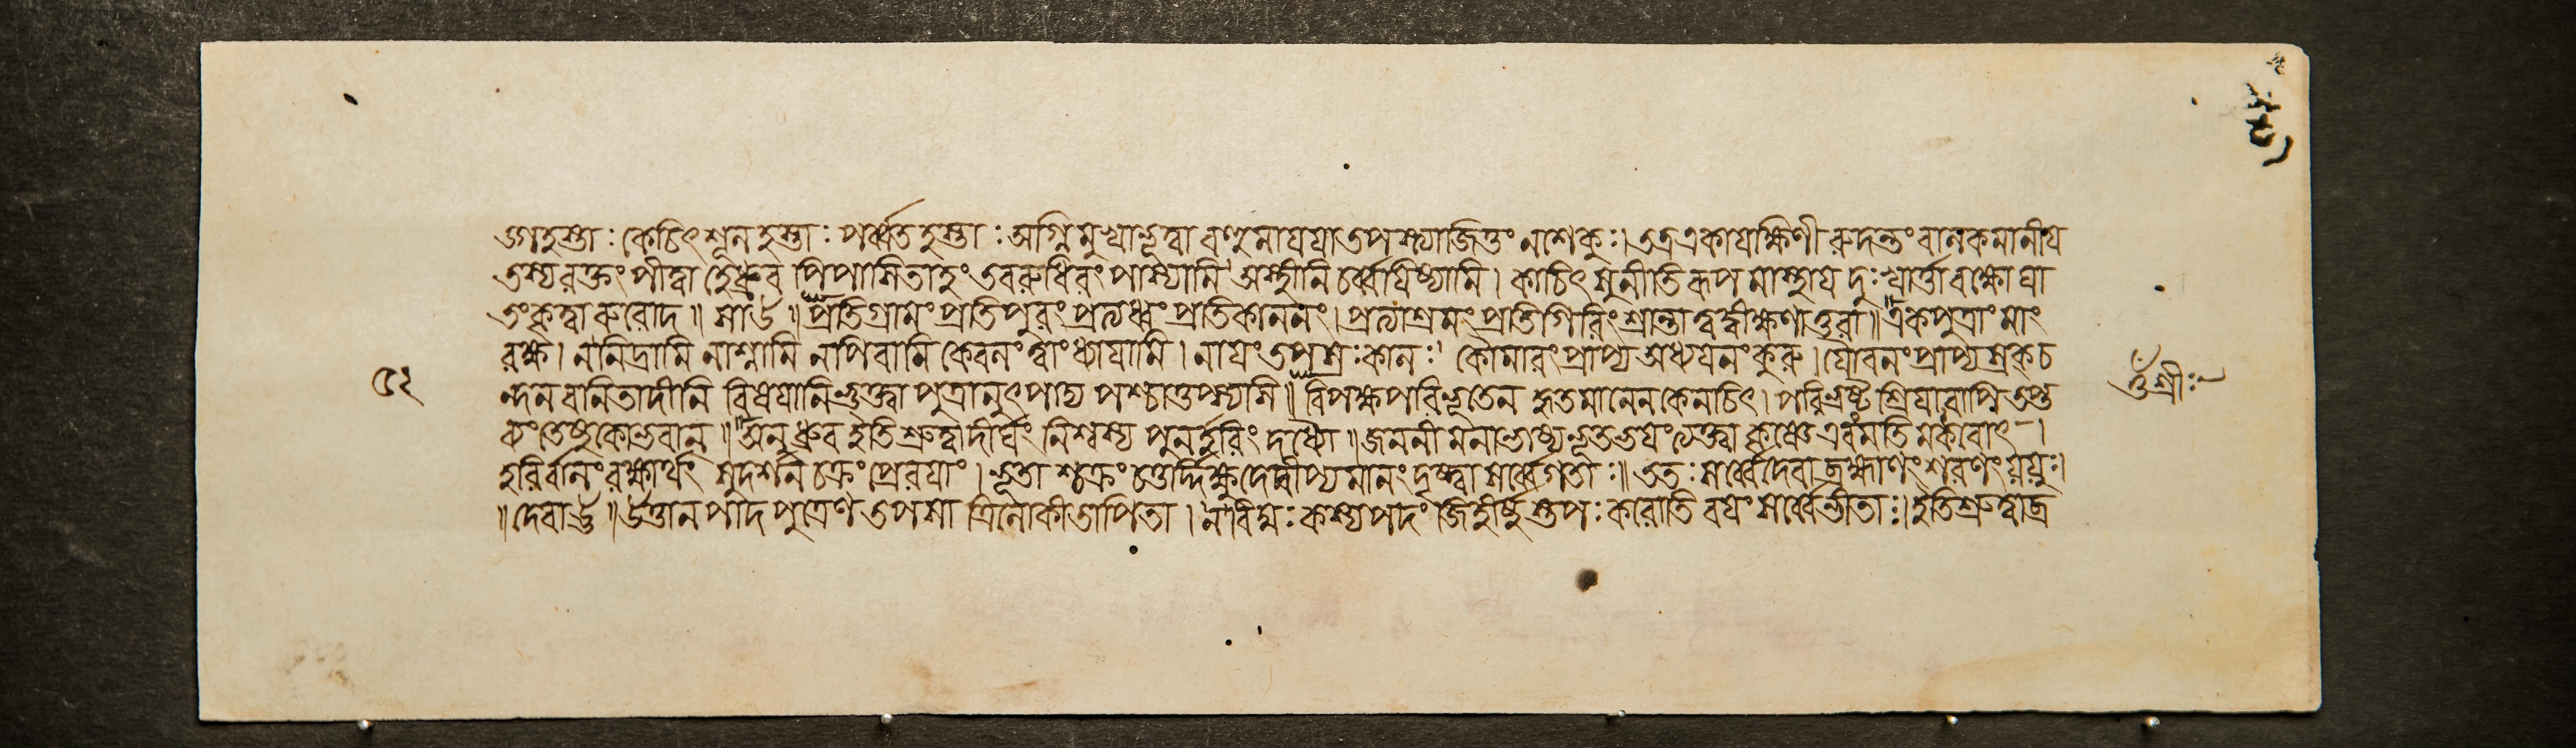 ঙ্গহস্তাঃ কেচিৎ শূলহস্তাঃ পর্ব্বতহস্তাঃ অগ্নিমুখাভূত্বা
তস্যরক্তং পীত্বা হেধ্রুব পিপাসিতাহং তবরুধিরং পাস্যামি অস্থীনি চর্ব্বয়িষ্যামি। কাচিৎ সুনীতিরূপমাস্থায় দুঃখার্ত্তাবক্ষোঘা
তংকৃত্বা রুরোদ॥ সোউ॥ প্রতিগ্রামং প্রতিপুরং প্রত্যধ্বং প্রতিকাননং। প্রত্যাশ্রমং প্রতিগিরিং শ্রান্তা ত্বদ্বীক্ষণাতুরা॥ একপুত্রাং মাং
রক্ষ। ননিদ্রামি নাশ্নামি নপিবামি কেবলং ত্বাং ধ্যায়ামি। নায়ং তপসঃ কালঃ। কৌমারং প্রাপ্য অধ্যয়নং কুরু। যৌবনং প্রাপ্য স্রক্চ
ন্দনবনিতাদীনি বিষয়ানিভুক্ত্বা পুত্রানুৎপাদ্য পশ্চাত্তপস্যসি॥ বিপক্ষপরিভূতেন হৃতমানেন কেনচিৎ। পরিভ্রষ্টশ্রিয়াবাপি তপ্ত
অনুধ্রুব ইতিশ্রুত্বা দীর্ঘং নিশ্বস্য পুনর্হরিং দধ্যৌ॥ জননী
হরির্বালং রক্ষার্থং সুদর্শনচক্রং প্রেরয়াং। ভূতা শ্চক্রং চতুর্দ্দিক্ষু দেদীপ্যমানং দৃষ্ট্বা সর্ব্বেগতাঃ॥ ততঃ সর্ব্বেদেবা ব্রহ্মাণং শরণং যযুঃ।
॥ দেবাউ॥ উত্তানপাদপুত্রেণ তপসা ত্রিলোকীতাপিতা। নবিদ্মঃ কস্যপদং জিহীর্ষুস্তপঃ করোতি বয়ং সর্ব্বেভীতাঃ। ইতিশ্রুত্বাব্র
৫২
শ্রীঃ